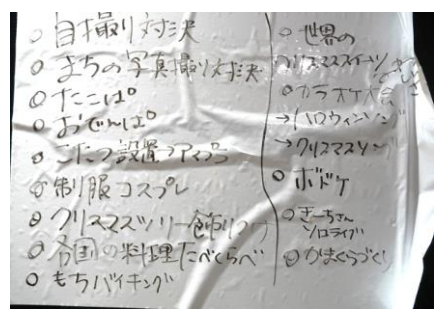 ○ 自撮り対決
○ まちの写真撮り対決
○ たこぱ
○ おでんぱ
○ こたつ設置
○ 制服コスプレ
○ クリスマスツリー飾りつけ
○ 各国の料理たべくらべ
○ もちバイキング
○ 世界の
クリスマススイーツ
○ カラオケ大会
→ハロウィンソング
→クリスマスソング
○ ボドゲ
○ きーちゃん
ソロライブ
○ かまくらづくり